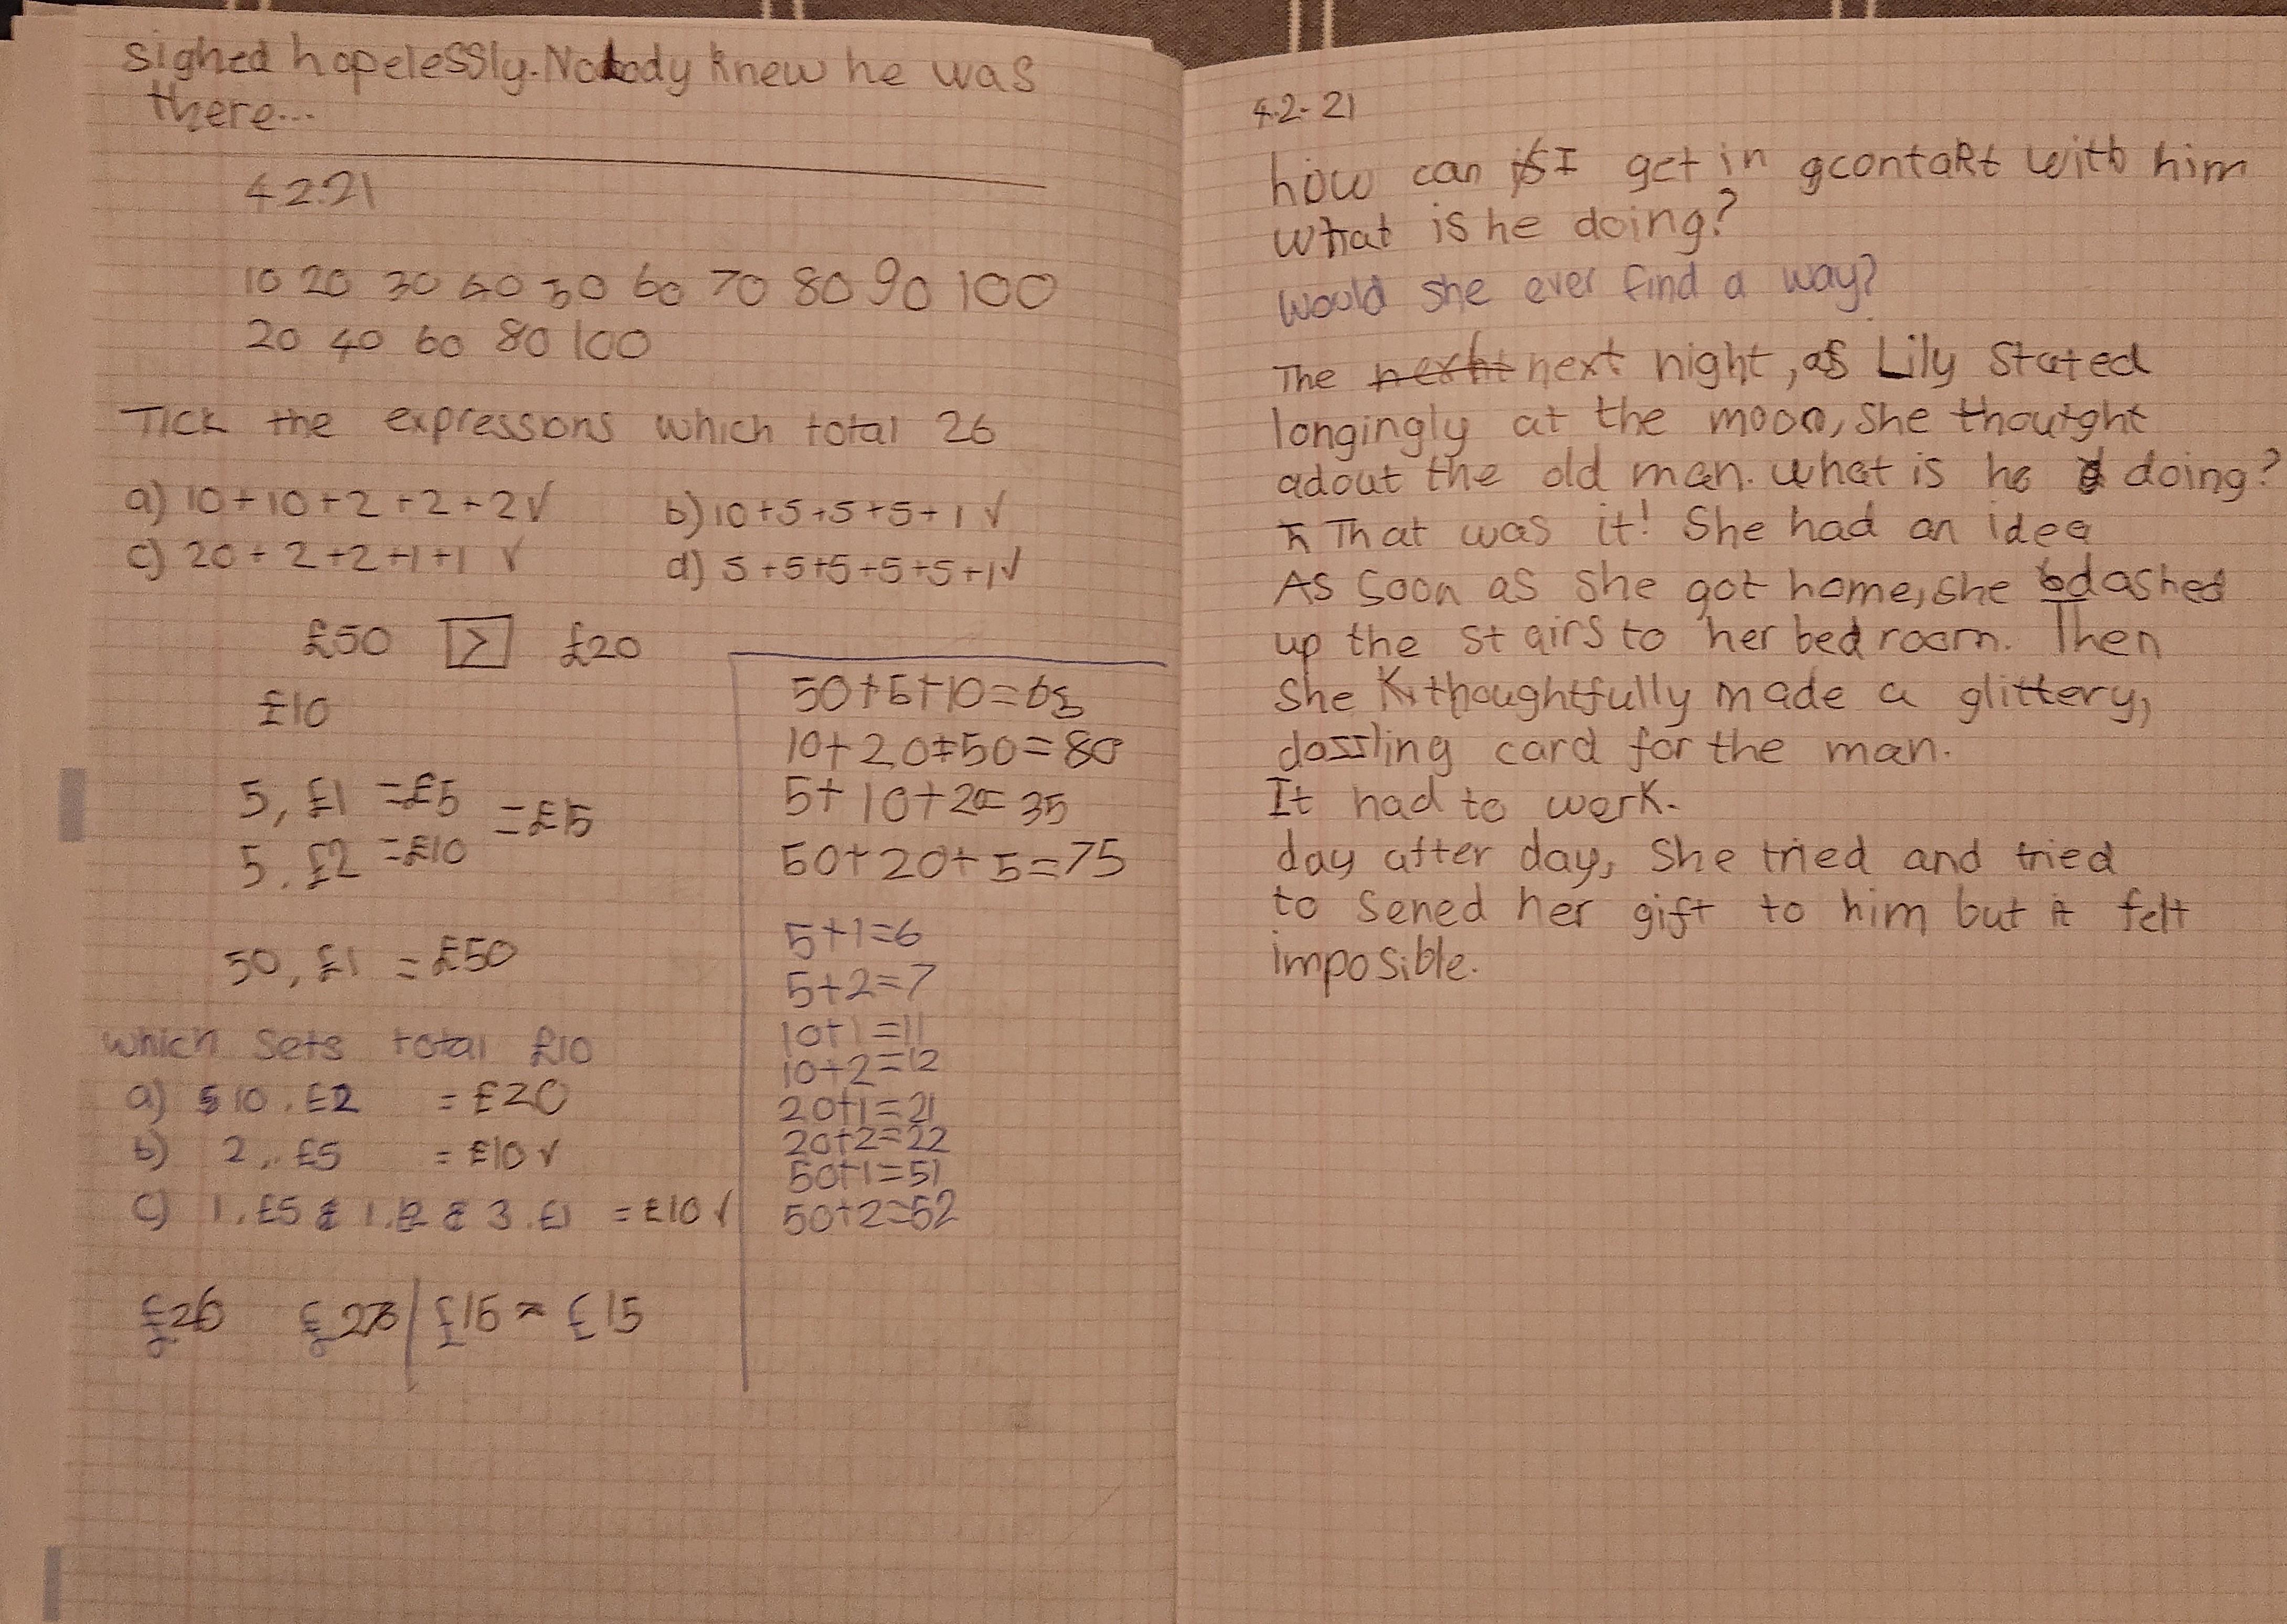 sighed hopelessly. Nobody knew he was
there...
4.2.21
10 20 30 40 50 60 70 80 90 100
20 40 60 80 100
Tick the expressions which total 26
a) 10+10+2+2+2✓ b) 10+5+5+5+1 ✓
c) 20+2+2+1+1 ✓ d) 5+5+5+5+5+1✓
£50 > £20
£10
5, £1 =£5
=£15
5. £2 =£10
50, £1 = £50
which sets total £10
a) 10. £2 = £20
b) 2, £5 = £10 ✓
c) 1. £5 & 1. £2 & 3. £1 = £10 ✓
£26 | £15 = £15
50+5+10=65
10+20+50=80
5+10+20=35
50+20+5=75
5+1=6
5+2=7
10+1=11
10+2=12
20+1=21
20+2=22
50+1=51
50+2=52
4.2-21
how can I get in contakt with him
what is he doing?
would she ever find a way?
The next night, as Lily stated
longingly at the moon, she thought
adout the old man. what is he doing?
That was it! She had an idea
As soon as she got home, she dashed
up the stairs to her bedroom. Then
she thoughtfully made a glittery,
dazzling card for the man.
It had to work.
day after day, she tried and tried
to sened her gift to him but it felt
imposible.